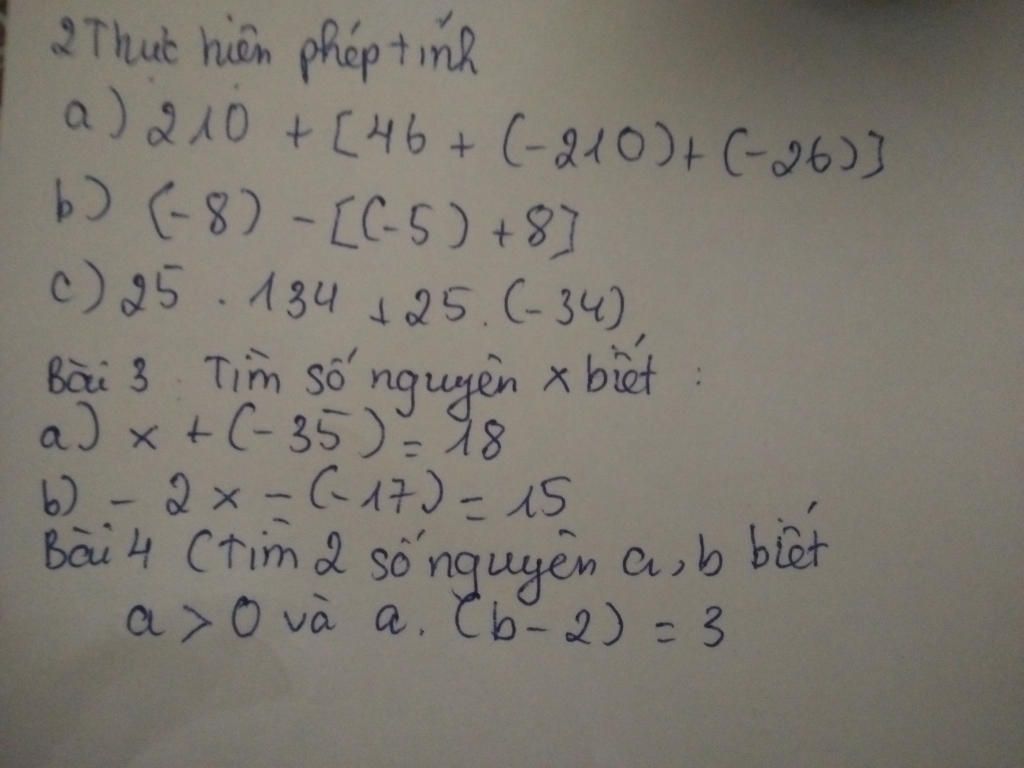 2 Thực hiện phép tính
a) 210 + [46 + (-210) + (-26)]
b) (-8) - [(-5) + 8]
c) 25 . 134 + 25 . (-34)
Bài 3 Tìm số nguyên x biết :
a) x + (-35) = 18
b) - 2x - (-17) = 15
Bài 4 (Tìm 2 số nguyên a, b biết
a > 0 và a. (b - 2) = 3